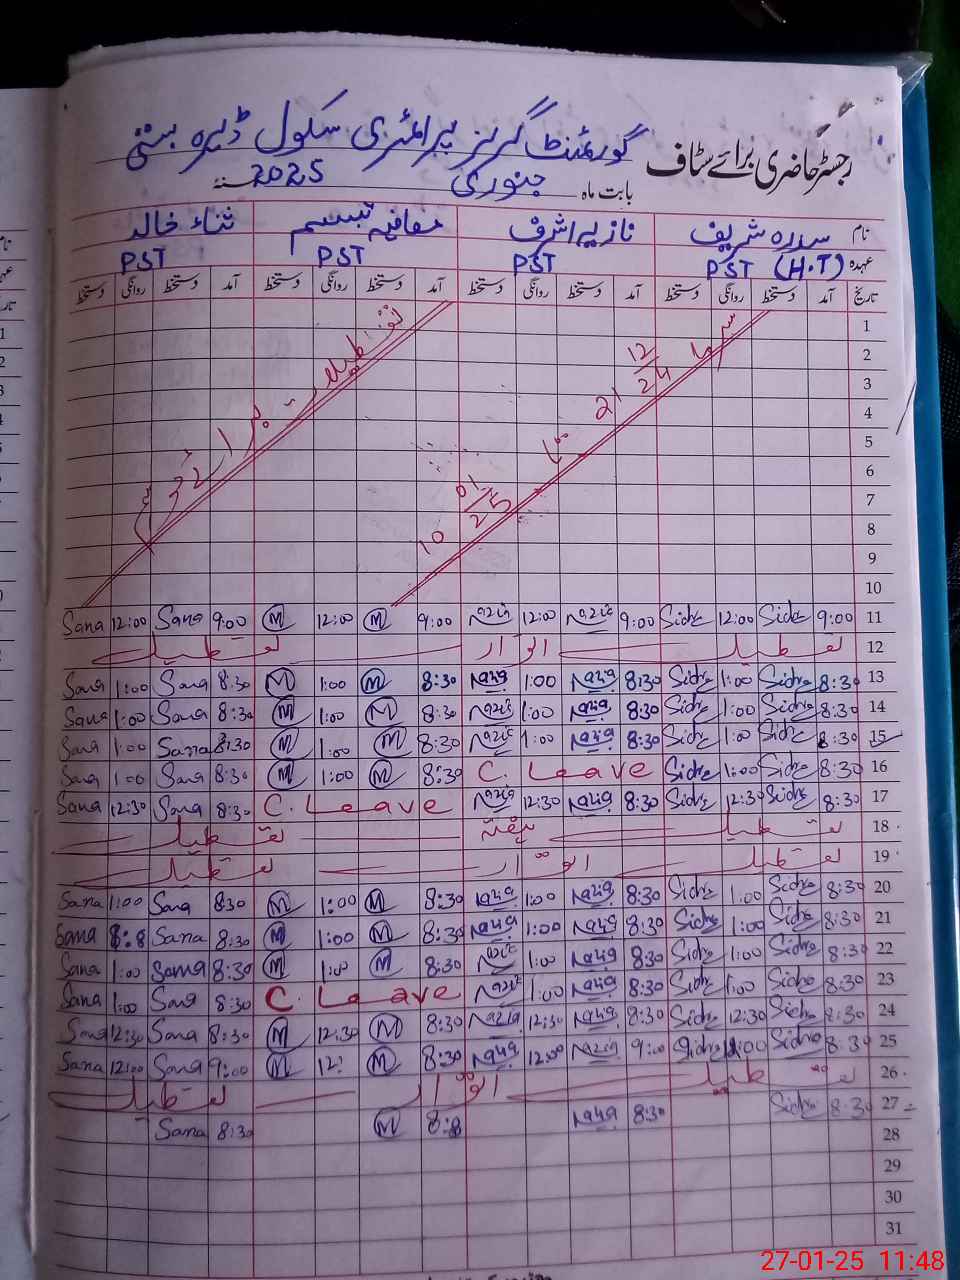 رجسٹر حاضری برائے سٹاف گورنمنٹ گرلز پرائمری سکول ڈیرہ بستی
بابت ماہ جنوری 2025
نام سدرہ شریف نازیہ اشرف صافیہ تبسم ثناء خالد
عہدہ PST (H.T) PST PST PST
تاریخ آمد دستخط روانگی دستخط آمد دستخط روانگی دستخط آمد دستخط روانگی دستخط آمد دستخط روانگی دستخط
1
2
3
4
5
6
7
8
9
10
سرما 21 12/24 تا 10 01/25
11 9:00 Sidra 12:00 Sidra 9:00 Nazia 12:00 Nazia 9:00 M 12:00 M 9:00 Sana 12:00 Sana
12 تعطیل اتوار تعطیل
13 8:30 Sidra 1:00 Sidra 8:30 Nazia 1:00 Nazia 8:30 M 1:00 M 8:30 Sana 1:00 Sana
14 8:30 Sidra 1:00 Sidra 8:30 Nazia 1:00 Nazia 8:30 M 1:00 M 8:30 Sana 1:00 Sana
15 8:30 Sidra 1:00 Sidra 8:30 Nazia 1:00 Nazia 8:30 M 1:00 M 8:30 Sana 1:00 Sana
16 8:30 Sidra 1:00 Sidra C. Leave 8:30 M 1:00 M 8:30 Sana 1:00 Sana
17 8:30 Sidra 12:30 Sidra 8:30 Nazia 12:30 Nazia C. Leave 8:30 Sana 12:30 Sana
18 تعطیل ہفتہ تعطیل
19 تعطیل اتوار تعطیل
20 8:30 Sidra 1:00 Sidra 8:30 Nazia 1:00 Nazia 8:30 M 1:00 M 830 Sana 1:00 Sana
21 8:30 Sidra 1:00 Sidra 8:30 Nazia 1:00 Nazia 8:30 M 1:00 M 8:30 Sana Sana
22 8:30 Sidra 1:00 Sidra 8:30 Nazia 1:00 Nazia 8:30 M 1:00 M 8:30 Sana 1:00 Sana
23 8:30 Sidra 1:00 Sidra 8:30 Nazia 1:00 Nazia C. Leave 8:30 Sana 1:00 Sana
24 8:30 Sidra 12:30 Sidra 8:30 Nazia 12:30 Nazia 8:30 M 12:30 M 8:30 Sana 12:30 Sana
25 8:30 Sidra Sidra 9:00 Nazia 12:00 Nazia 8:30 M 12: M 9:00 Sana 12:00 Sana
26 تعطیل اتوار تعطیل
27 8:30 Sidra 8:30 Nazia M 8:30 Sana
28
29
30
31
27-01-25 11:48